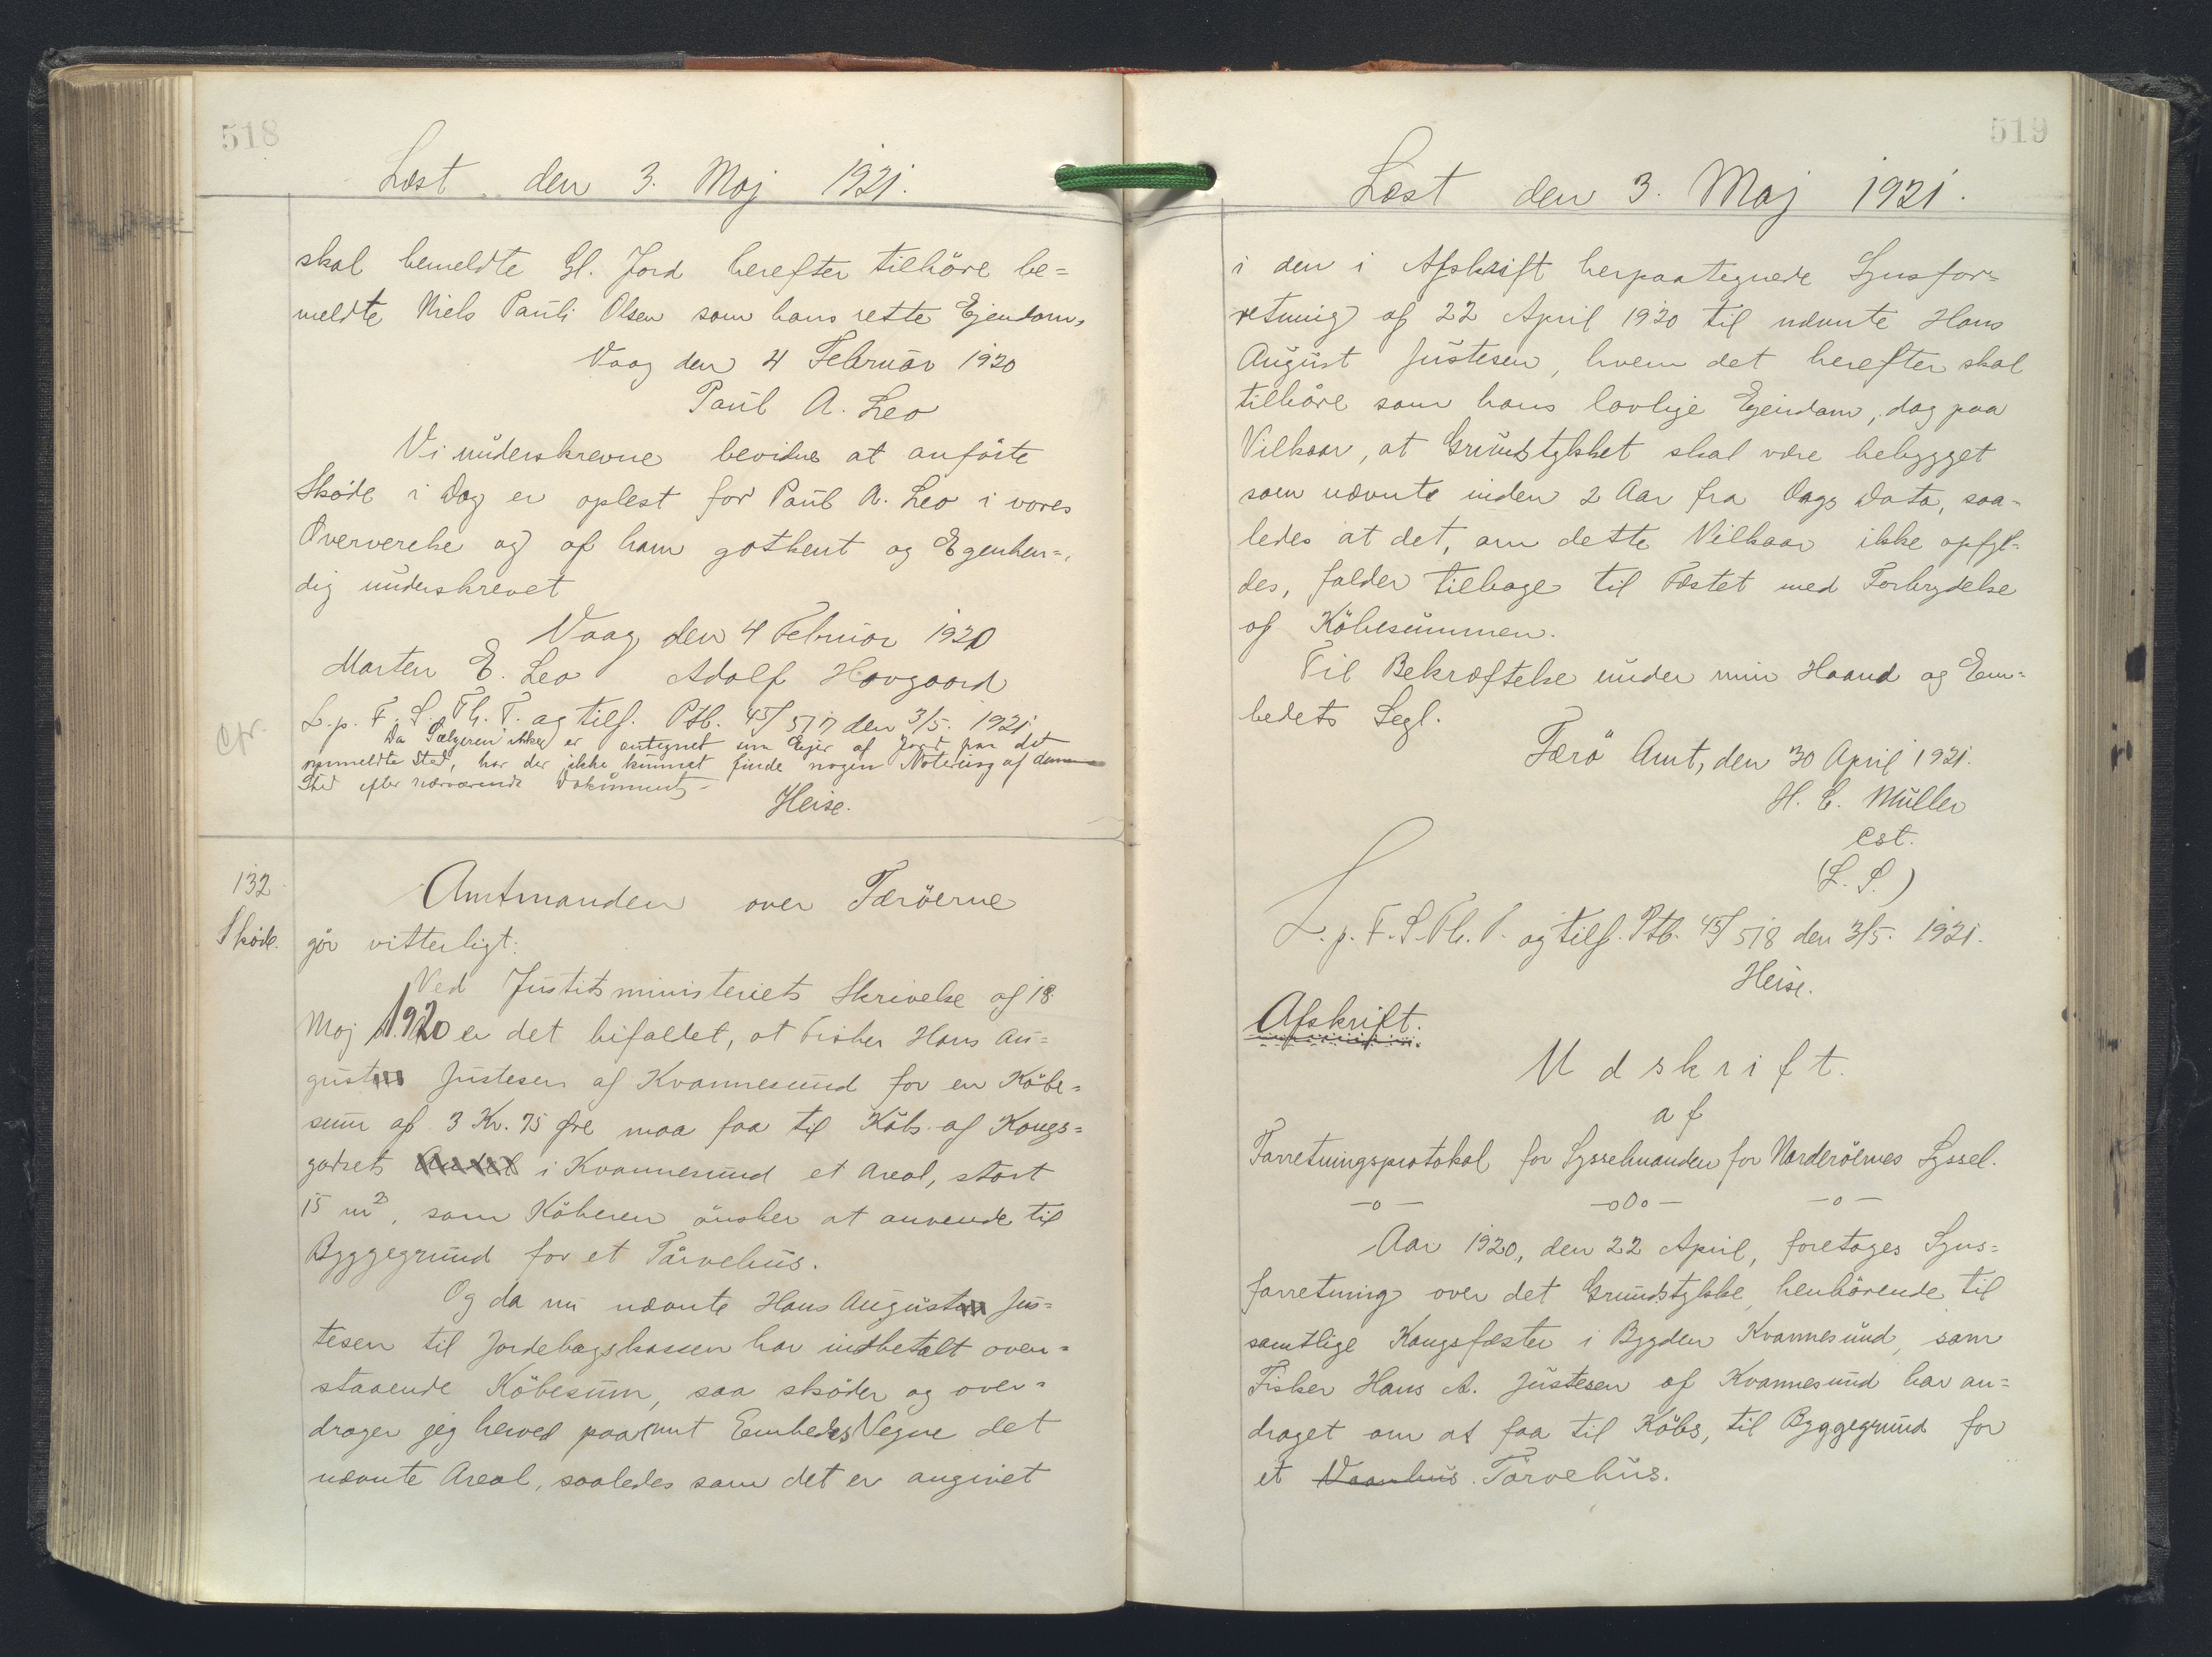 518
Læst den 3. Maj 1921.
skal bemeldte Gl. Jord herefter tilhöre be=
meldte Niels Pauli Olsen som hans rette Ejendom,
Vaag den 4 Februar 1920
Paul A. Leo
Vi underskrevne bevidne at anförte
Sköde i Dag er oplest for Paul A. Leo i vores
Oververelse og af ham gotkent og Egenhen=
dig underskrevet
Vaag den 4 Februar 1920
Morten E. Leo Adolf Hovgaard
L. p. F. S. Th. T. og tilf. Ptb. 45/517 den 3/5. 1921.
cfr.
Da Sælgeren ikke er antegnet som Ejer af Jord paa det
ommeldte Sted, har der ikke kunnet finde nogen Notering af denne
Sted efter nærværende Dokument,
Heise.
132
Sköde.
Amtmanden over Færöerne
gör vitterligt:
Ved Justitsministeriets Skrivelse af 18.
Maj 1920 er det bifaldet, at Fisker Hans Au=
gust Justesen af Kvannesund for en Köbe=
sum af 3 Kr. 75 Øre maa faa til Köbs af Kongs=
godsets i Kvannesund et Areal, stort
15 m2, som Köberen önsker at anvende til
Byggegrund for et Törvehus.
Og da nu nævnte Hans August Jus=
tesen til Jordebogskassen har indbetalt oven=
staaende Köbesum, saa sköder og over=
drager jeg herved paa mit Embedes Vegne det
nævnte Areal, saaledes som det er angivet
519
Læst den 3. Maj 1921.
i den i Afskrift herpaategnede Synsfor=
retning af 22 April 1920 til nævnte Hans
August Justesen, hvem det herefter skal
tilhöre som hans lovlige Ejendom, dog paa
Vilkaar, at Grundstykket skal være bebygget
som nævnte inden 2 Aar fra Dags Dato, saa=
ledes at det, om dette Vilkaar ikke opfyl=
des, falder tilbage til Fæstet med Forbrydelse
af Köbesummen.
Til Bekræftelse under min Haand og Em=
bedets Segl.
Færö Amt, den 30 April 1921.
H. C. Müller
cst.
(L. S.)
L. p. F. S. Th. T. og tilf. Ptb. 45/518 den 3/5. 1921.
Heise.
Afskrift.
Udskrift.
af
Forretningsprotokol for Sysselmanden for Norderöernes Syssel.
—o— —oOo— —o—
Aar 1920, den 22 April, foretoges Syns=
forretning over det Grundstykke, henhörende til
samtlige Kongsfæster i Bygden Kvannesund, som
Fisker Hans A. Justesen af Kvannesund har an=
draget om at faa til Köbs, til Byggegrund for
et Vaanhus. Törvehus.